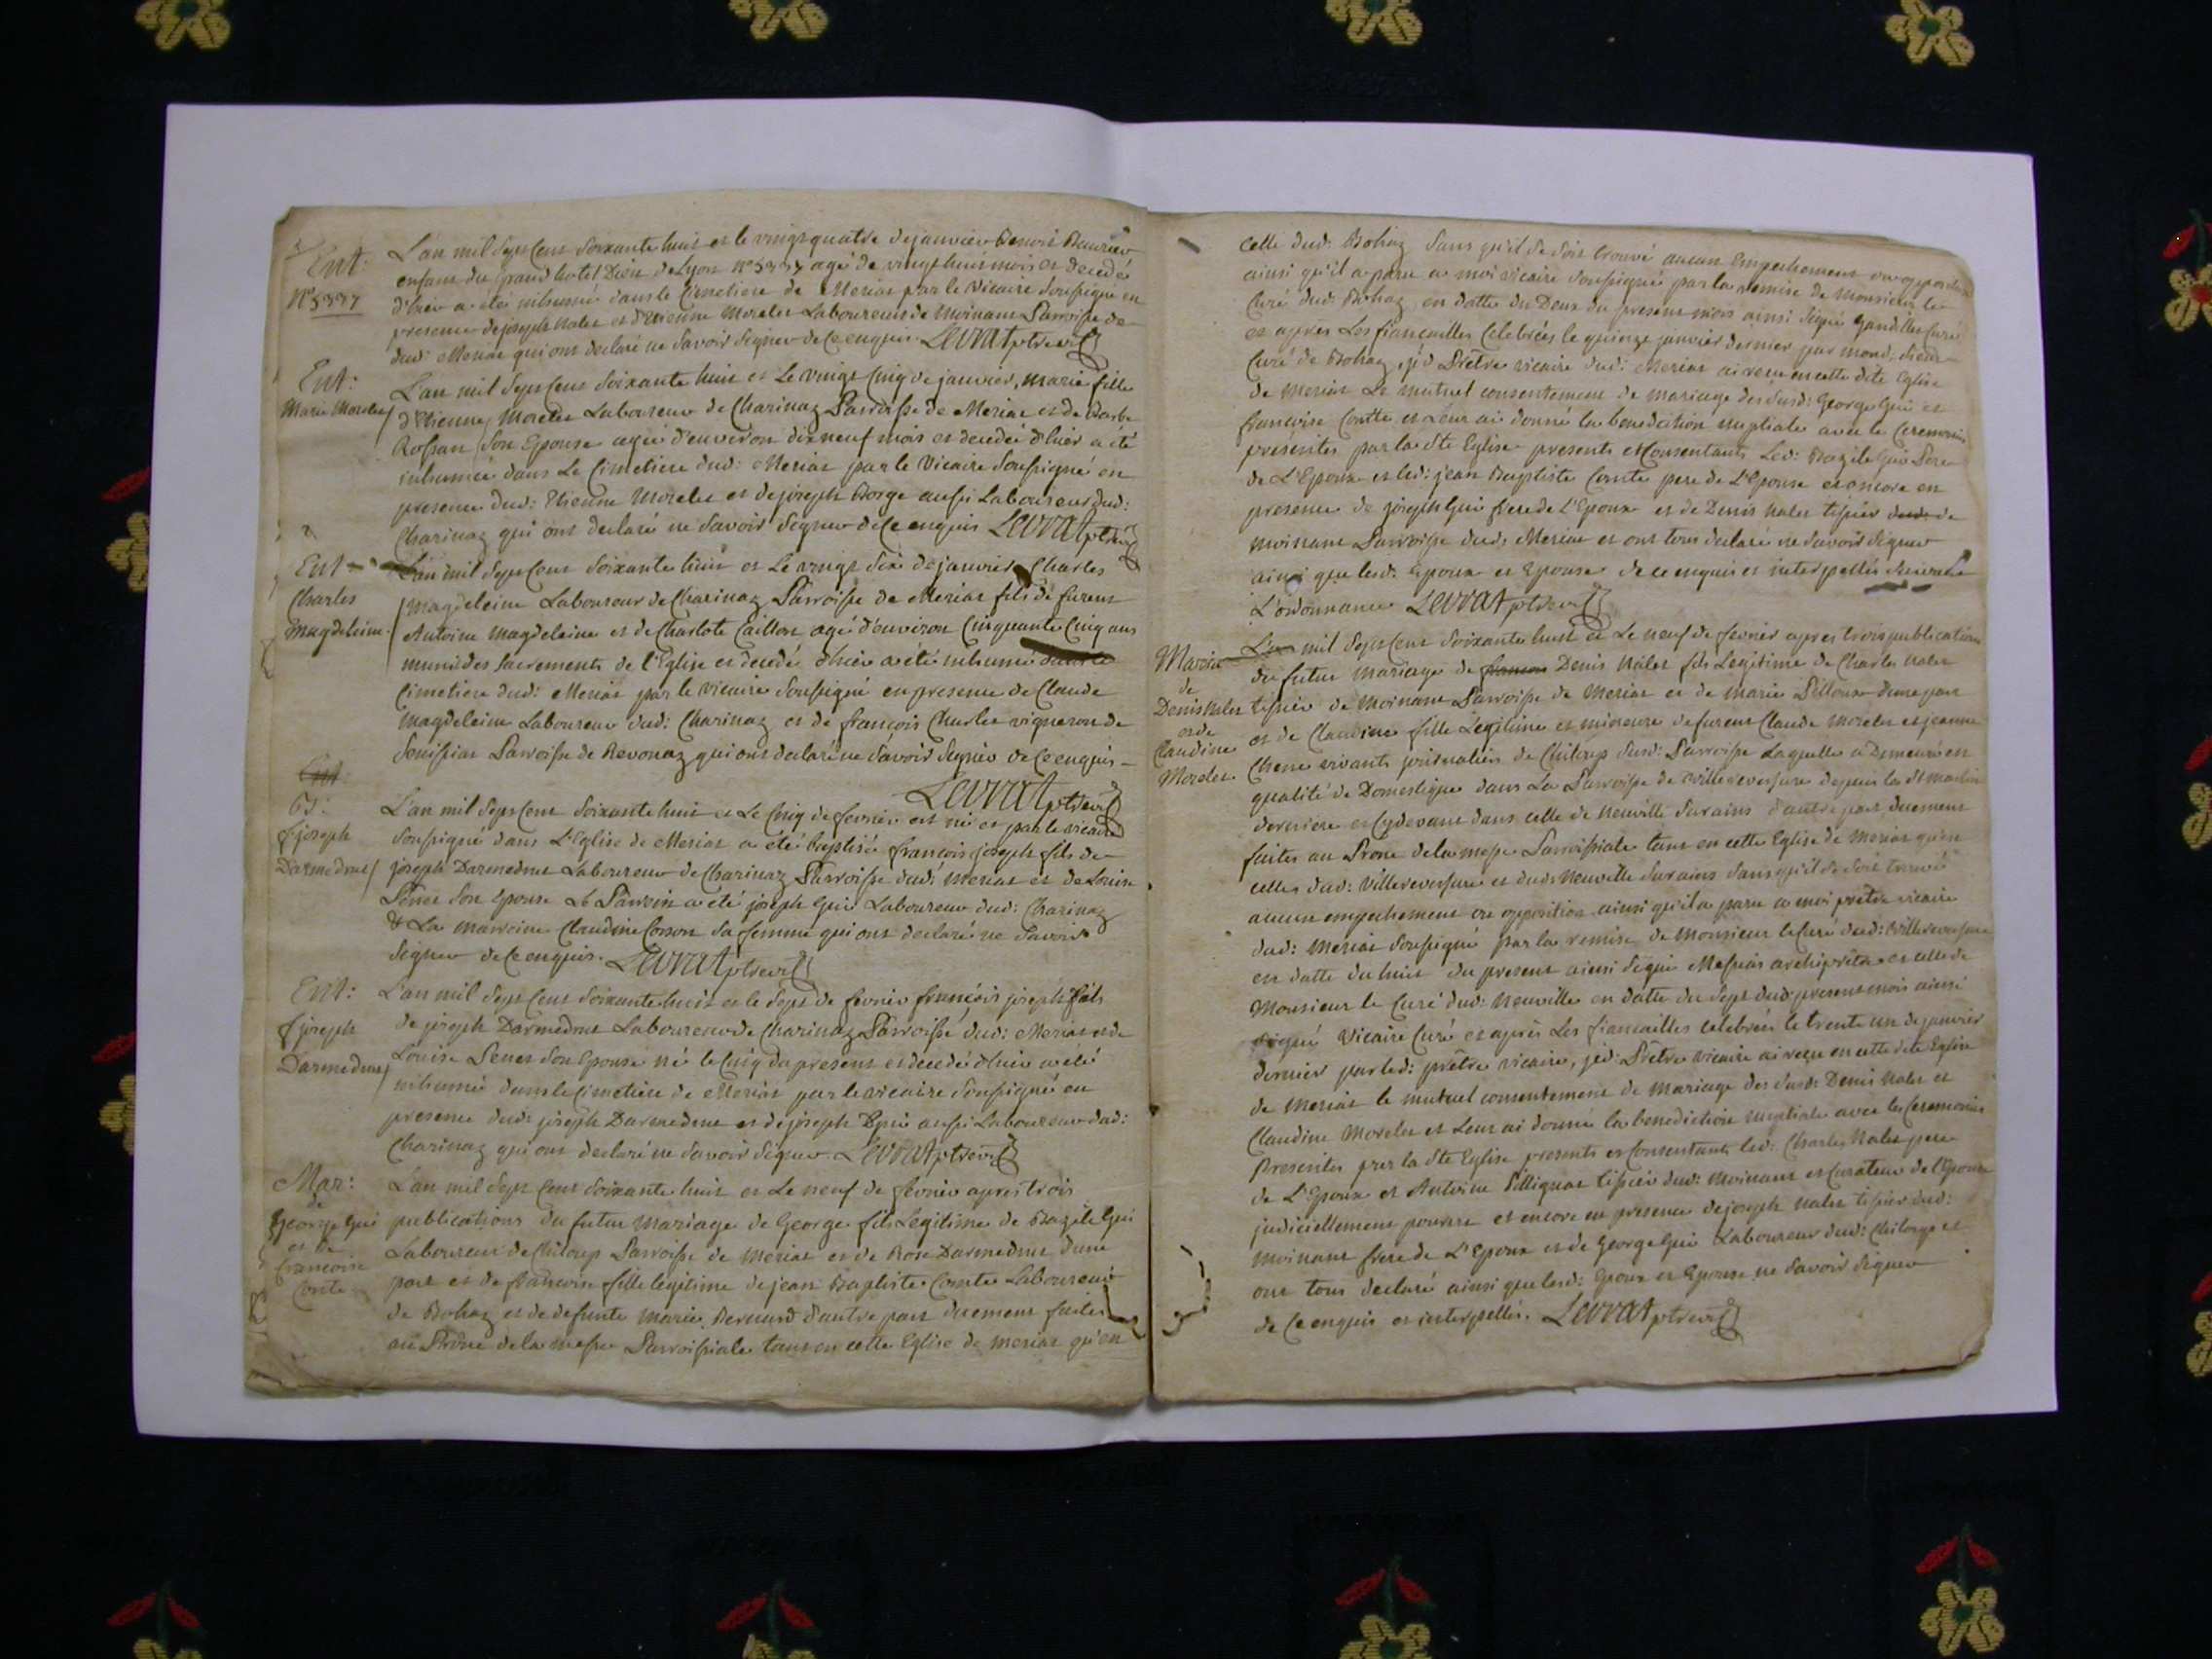 Ent:
N° 5337
L'an mil sept cent soixante huit et le vingt quatre de janvier Benoit
enfant du grand hotel Dieu de Lyon n° 5337 agé de vingt huit mois et decedé
d'hier a été inhumé dans le Cimetiere de Meriat par le Vicaire soussigné en
presence de joseph Nalet et d'Etienne Morelet Laboureurs de Moinant Parroisse de
dud: Meriat qui ont declaré ne savoir signer de ce enquis. Levrat ptre vic
Ent:
Marie Morelet
L'an mil sept cent soixante huit et Le vingt cinq de janvier, marie fille
d'Etienne Morelet Laboureur de Charinaz Parroisse de Meriat et de Barbe
Rossan son Epouse agée d'environ dix neuf mois et decedée d'hier a été
inhumée dans Le Cimetiere dud: Meriat par le Vicaire soussigné en
presence dud: Etienne Morelet et de joseph Borge aussi Laboureur dud:
Charinaz qui ont declaré ne savoir signer de ce enquis Levrat ptre vic
Ent
Charles
Magdeleine
L'an mil sept cent soixante huit et Le vingt six de janvier Charles
Magdeleine Laboureur de Charinaz Parroisse de Meriat fils de furent
Antoine Magdeleine et de Charlote Caillon agé d'environ cinquante cinq ans
muni des sacrements de l'Eglise et decedé d'hier a été inhumé dans le
Cimetiere dud: Meriat par le vicaire soussigné en presence de Claude
Magdeleine Laboureur dud: Charinaz et de françois Charlet vigneron de
Senissiat Parroisse de Revonaz qui ont declaré ne savoir signer de ce enquis
Levrat ptre vic
Ent
f joseph
Darmedrut
L'an mil sept cent soixante huit et Le cinq de fevrier est né et par le vicaire
soussigné dans L'Eglise de Meriat a été baptisé françois joseph fils de
joseph Darmedrut Laboureur de Charinaz Parroisse dud: Meriat et de Louise
son Epouse Le Parrein a été joseph Gui Laboureur dud: Charinaz
& La marreine Claudine sa femme qui ont declaré ne savoir
signer de ce enquis. Levrat ptre vic
Ent:
f joseph
Darmedrut
L'an mil sept cent soixante huit et le sept de fevrier françois joseph fils
de joseph Darmedrut Laboureur de Charinaz Parroisse dud: Meriat et de
Louise son Epouse né le cinq du present et decedé d'hier a été
inhumé dans le cimetiere de Meriat par le vicaire soussigné en
presence dud: joseph Darmedrut et de joseph Gui aussi Laboureur dud:
Charinaz qui ont declaré ne savoir signer. Levrat ptre vic
Mar:
de
George Gui
et de
francoise
Conte
L'an mil sept cent soixante huit et Le neuf de fevrier apres trois
publications du futur mariage de George fils Legitime de Bazile Gui
Laboureur de Chiloup Parroisse de Meriat et de Rose Darmedrut d'une
part et de françoise fille legitime de jean Baptiste Comte Laboureur
de Bohaz et de defunte Marie Bernard d'autre part duement faites
au Prône de la messe Parroissiale tant en cette Eglise de meriat qu'en
celle dud: Bohaz sans qu'il se soit trouvé aucun Empechement ou opposition
ainsi qu'il a paru a moi vicaire soussigné par la remise de Monsieur le
Curé dud: Bohaz en datte du Deux du present mois ainsi signé Curé
et apres Les fiancailles celebrées le quinze janvier dernier par mond: sieur
Curé de Bohaz, jéd Prêtre vicaire dud: Meriat ai recu en cette dite Eglise
de Meriat Le mutuel consentement de mariage des susd: George Gui et
françoise Contte et Leur ai donné la benediction nuptiale avec les ceremonies
presérites par la Ste Eglise presents et Consentants Led: Bazile Gui Pere
de L'Epoux et led: jean Baptiste Comte pere de L'Epouse et encore en
presence de joseph Gui frere de L'Epoux et de Denis Nalet tissier dud: de
Moinant Parroisse dud: Meriat et ont tous declaré ne savoir signer
ainsi que lesd: Epoux et Epouse de ce enquis et interpellés suivant
L'ordonnance Levrat ptre vic
Mariage
de
Denis Nalet
et de
Claudine
Morelet
L'an mil sept cent soixante huit et Le neuf de fevrier apres trois publications
du futur mariage de francois Denis Nalet fils Legitime de Charles Nalet
tissier de Moinant Parroisse de Meriat et de Marie Pilloux d'une part
et de Claudine fille Legitime et mineure de furent Claude Morelet et jeanne
Chene vivants journaliers de Chiloup susd: Parroisse Laquelle a Demeuré en
qualité de Domestique dans La Parroisse de Villereversure depuis la St martin
derniere et Cydevant dans celle de Neuville sur ains d'autre part duement
faites au Prone de la messe Parroissiale tant en cette Eglise de Meriat qu'en
celles dud: Villereversure et dud: Neuville sur ains sans qu'il se soit trouvé
aucun empechement ou opposition ainsi qu'il a paru a moi prêtre vicaire
dud: Meriat soussigné par la remise de Monsieur le Curé dud: Villereversure
en datte du huit du present ainsi signé archiprêtre et celle de
Monsieur le Curé dud: Neuville en datte du sept dud: present mois ainsi
signé Vicaire Curé et après Les fiancailles celebrées le trente un de janvier
dernier par led: prêtre vicaire, jéd: Prêtre vicaire ai reçu en cette dite Eglise
de Meriat le mutuel consentement de mariage des susd: Denis Nalet et
Claudine Morelet et Leur ai donné la benediction nuptiale avec les ceremonies
Prescrites par la Ste Eglise presents et Consentants led: Charles Nalet pere
de L'Epoux et Antoine Pillignat tissier dud: Moinant et Curateur de l'Epouse
judiciellement pourvu et encore en presence de joseph Nalet tissier dud:
Moinant frere de L'Epoux et de George Gui Laboureur dud: Chiloup et
ont tous declaré ainsi que lesd: Epoux et Epouse ne savoir signer
de ce enquis et interpellés. Levrat ptre vic